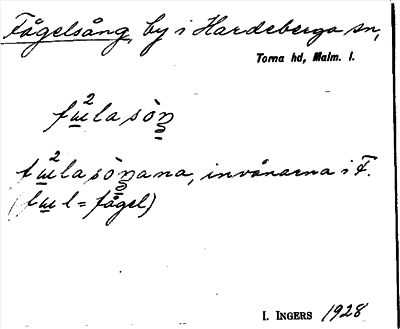 Fågelsång, by i Hardeberga sn,
Torna hd, Malm. l.
fɯ²lasòŋ
fɯ²lasòŋana, invånarna i F.
(fɯl = fågel)
I. INGERS 1928